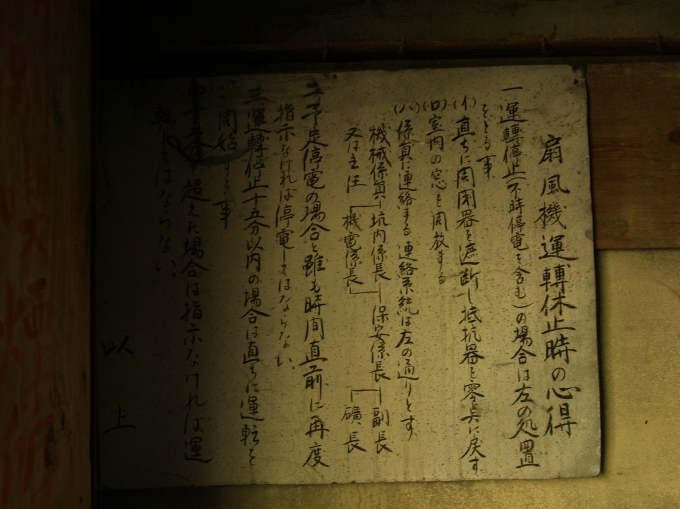 扇風機運轉休止時の心得
一 運轉停止(不時停電を含む)の場合は左の処置
をとる事
(イ)直ちに開閉器を遮断し抵抗器を零点に戻す
(ロ)室内の窓を開放する
(ハ)係員に連絡する連絡系統は左の通りとす
機械係員─坑内係長─保安係長─副長
又は主任 機電係長 礦長
二 予定停電の場合と雖も時間直前に再度
指示なければ停電してはならない
三 運轉停止十五分以内の場合は直ちに運転を
開始する事
超えた場合は指示なければ運
転してはならない
以上